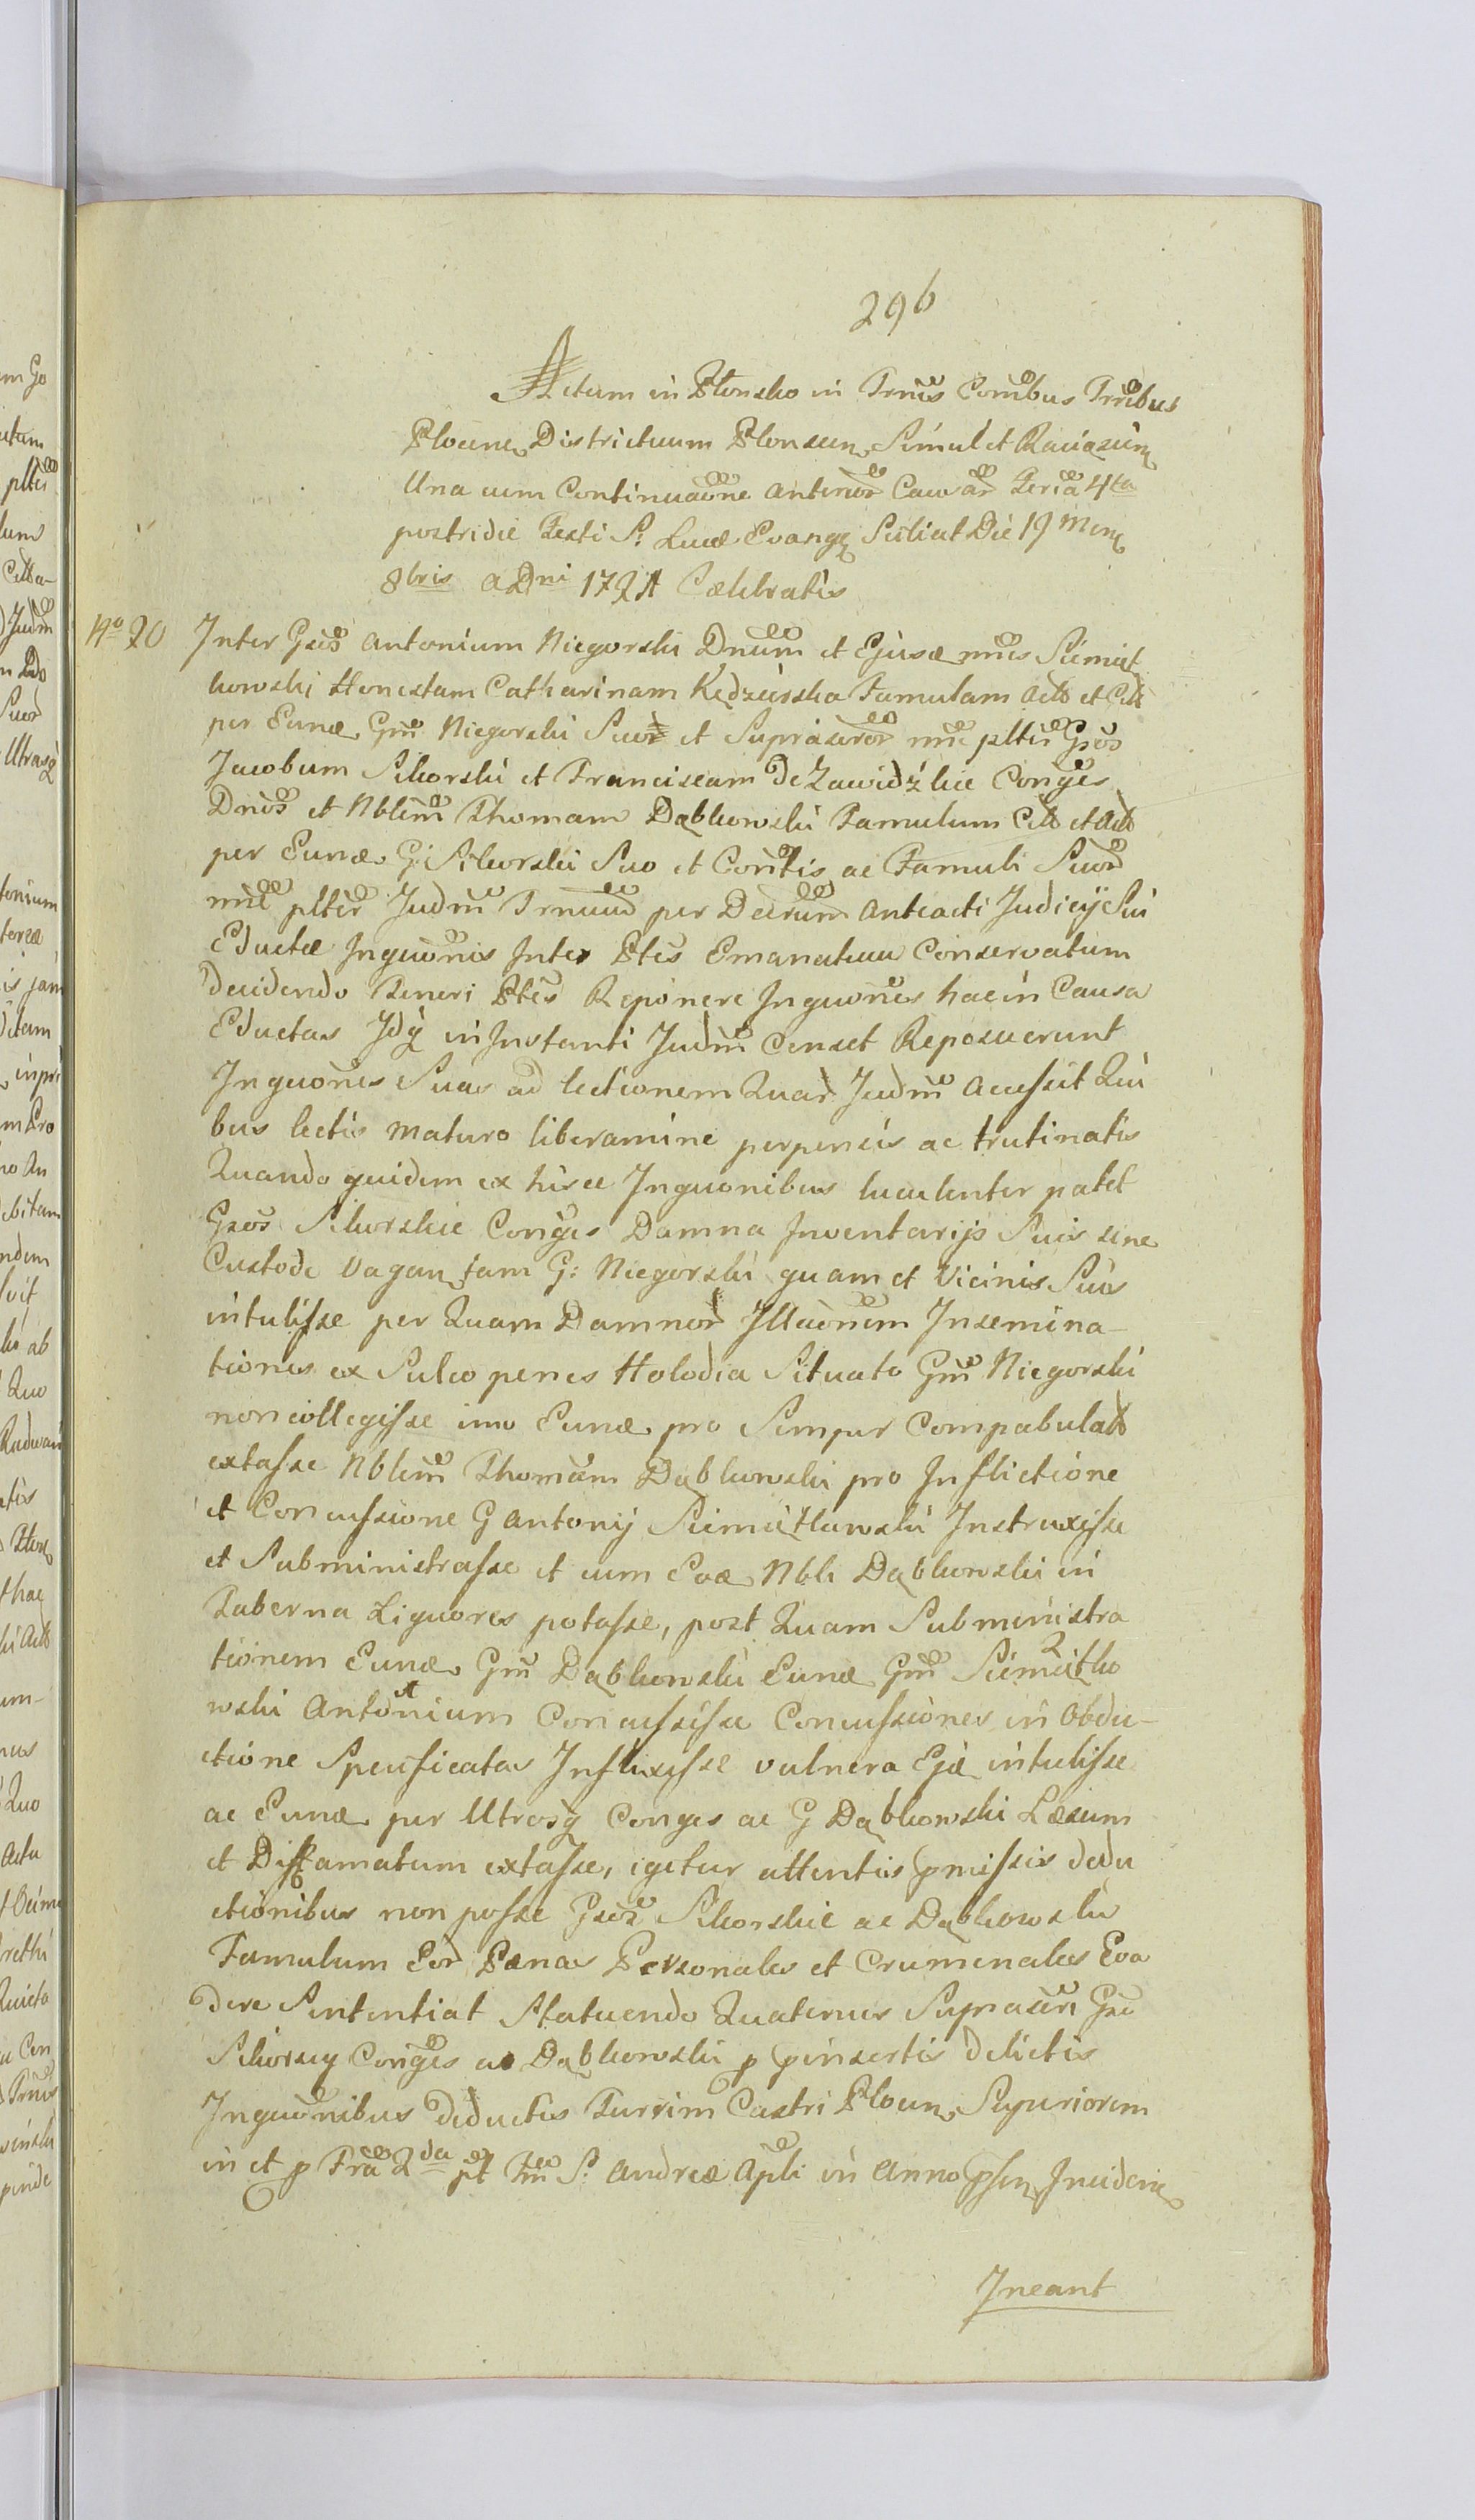 296
Actum in Płonsko in Trnis Conibus Trribus
Plocen Districtuum Plonscen Simul et Raciazien
Una cum Continuaone anterior Causar Feria 4ta
postridie Festi S. Lucæ Evang Sciliat Die 19 Mens
8bris a Dni 1724 Cælebratis
No 20 Inter Gsos Antonium Niegorski Dnum et Ejusæ mis Siemiąt
kowski Honestam Catharinam Kędzierska Famulam Acto et Citt
per Eunæ Gm Niegorski Suor et Supraser nne plter Gsos
Jacobum Sikorski et Franciscam De Zawidzkie Conges
Dnos et Nblem Thomam Dąbkowski Famulum Citt et Act
per Eunæ G. Sikorski Suo et Contis ac Famuli Suor
nne plter Judm Trnuu per Decrum anteacti Judicij Sui
Eductæ Inquonis Inter Ptes Emanatum Conservatum
Decidendo Teneri Ptes Reponere Inquones hac in Causa
Eductas Idq in Instanti Judm Censet Reposuerunt
Inquones Suas ad lectionem Quar Judm acceſsit Qui
bus lectis maturo liberamine perpensis ac trutinatis
Quando quidem ex hisce Inquonibus luculenter patet
Gsos Sikorskie Conges Damna Inventarijs Suis sine
Custode vagan tam G: Niegorski quam et Vicinis Suis
intuliſse per Quam Damnor Illaonem Insemina-
tiones ex Sulco penes Holodia Situato Gm Niegorski
non collegiſse imo Eunæ pro Semper Compabulatt
extaſse Nblem Thomam Dąbkowski pro Inflictione
et Concuſsione G Antonij Siemiątkowski Instruxiſse
et Subministraſse et cum Eoæ Nbli Dąbkowski in
Taberna Liquores potaſse, post Quam Subministra
tionem Eunæ Gm Dąbkowski Eunæ Gm Siemiątko
wski Antonium Concuſsiſse Concuſsiones in Obdu-
ctione Specificatas Inflixiſse vulnera Ejæ intuliſse
ac Eunæ per Utrosq Conges ac G Dąbkowski Læsum
et Diffamatum extaſse, igitur attentis pmiſsis dedu
ctionibus non poſse Gsos Sikorskie ac Dąbkowski
Famulum Eor Pænas Personales et Crumenales Eva
dere Sententiat Statuendo Quatenus Suprascri Gsi
Sikorscy Conges ac Dąbkowski p pinsertis delictis
Inquonibus deductis Turrim Castri Plocen Superiorem
in et p Fra 2da pt Fm S. Andreæ Apli in Anno psen Inciden
Ineant